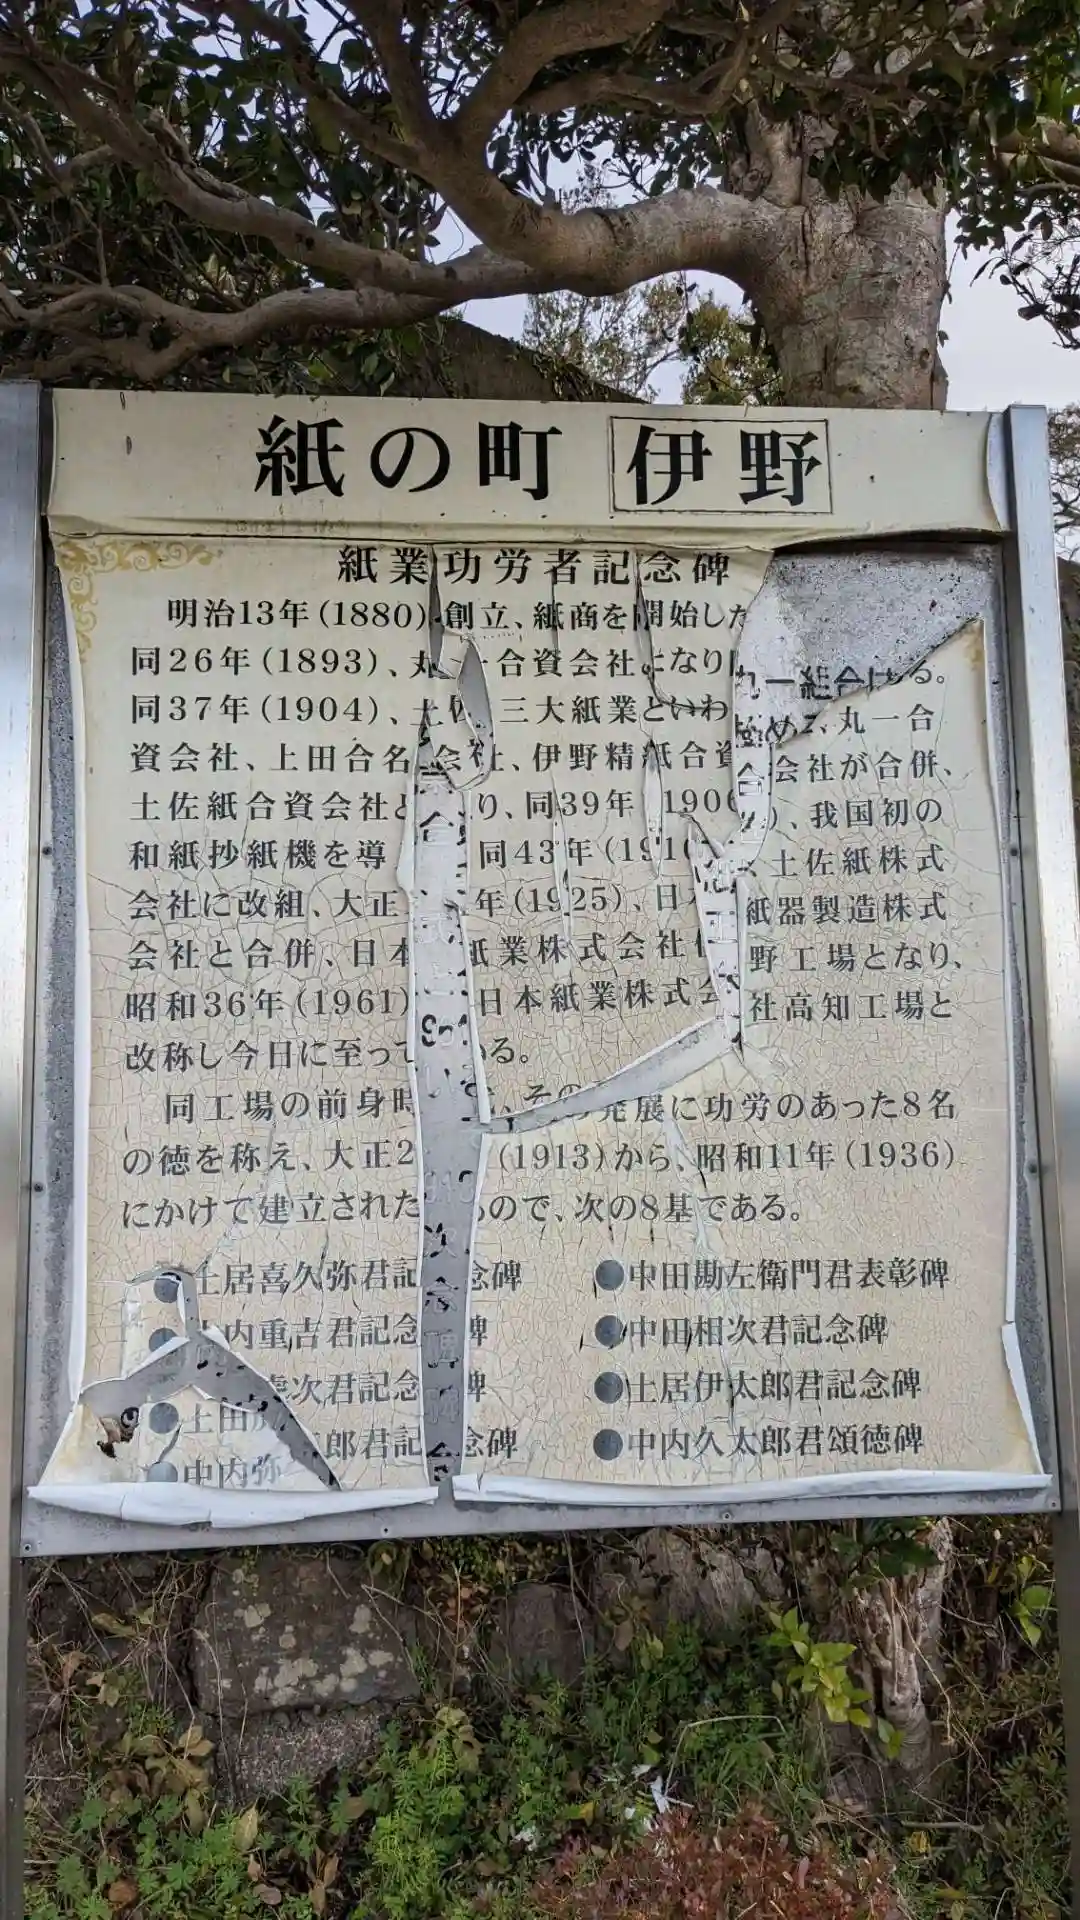 紙の町 伊野
紙業功労者記念碑
明治13年(1880)創立、紙商を開始した 丸一組合は
同26年(1893)、丸一合資会社となり る。
同37年(1904)、土佐三大紙業といわ 始め 、丸一合
資会社、上田合名会社、伊野精紙合資会社が合併、
土佐紙合資会社と り、同39年(1906)、我国初の
和紙抄紙機を導 同43年(191 土佐紙株式
会社に改組、大正 年(1925)、日本紙器製造株式
会社と合併、日本 紙業株式会社伊野工場となり、
昭和36年(1961) 日本紙業株式会社高知工場と
改称し今日に至って る。
同工場の前身時 、その発展に功労のあった8名
の徳を称え、大正2 (1913)から、昭和11年(1936)
にかけて建立された ので、次の8基である。
●土居喜久弥君記念碑 ●中田勘左衛門君表彰碑
●内重吉君記念碑 ●中田相次君記念碑
次君記念碑 ●土居伊太郎君記念碑
●土田
郎君記念碑 ●中内久太郎君頌徳碑
●中内弥